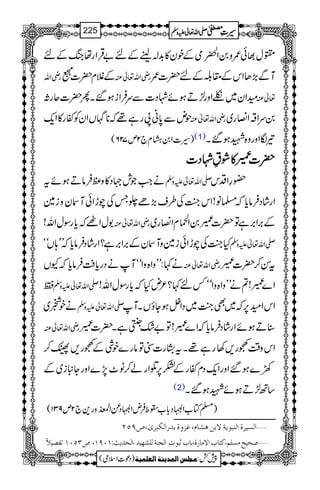 سیرتِ مصطفی صلی اللہ تعالیٰ علیہ وسلم 225
مقتول بھائی عمرو بن الحضرمی کے خون کا بدلہ لینے کے لئے بے قرار تھا جنگ کے لئے
آگے بڑھا اس کے مقابلہ کے لئے حضرت عمر رضی اللہ تعالیٰ عنہ کے غلام حضرت مہجع رضی اللہ
تعالیٰ عنہ میدان میں نکلے اور لڑتے ہوئے شہادت سے سرفراز ہو گئے۔ پھر حضرت حارثہ
بن سراقہ انصاری رضی اللہ تعالیٰ عنہ حوض سے پانی پی رہے تھے کہ ناگہاں ان کو کفار کا ایک
تیر لگا اور وہ شہید ہو گئے۔ (1) (سیرت ابن ہشام ج۲ ص ۶۲۷)
حضرت عمیر کا شوقِ شہادت
حضور اقدس صلی اللہ تعالیٰ علیہ وسلم نے جب جوش جہاد کا وعظ فرماتے ہوئے یہ
ارشاد فرمایا کہ مسلمانو! اس جنت کی طرف بڑھے چلو جس کی چوڑائی آسمان و زمین
کے برابر ہے تو حضرت عمیر بن الحمام انصاری رضی اللہ تعالیٰ عنہ بول اٹھے کہ یا رسول اللہ!
صلی اللہ تعالیٰ علیہ وسلم کیا جنت کی چوڑائی زمین و آسمان کے برابر ہے؟ ارشاد فرمایا کہ ”ہاں“
یہ سن کر حضرت عمیر رضی اللہ تعالیٰ عنہ نے کہا: ”واہ وا“ آپ نے دریافت فرمایا کہ کیوں
اے عمیر! تم نے ”واہ وا“ کس لئے کہا؟ عرض کیا کہ یا رسول اللہ! صلی اللہ تعالیٰ علیہ وسلم فقط
اس امید پر کہ میں بھی جنت میں داخل ہو جاؤں۔ آپ صلی اللہ تعالیٰ علیہ وسلم نے خوشخبری
سناتے ہوئے ارشاد فرمایا کہ اے عمیر! تو بے شک جنتی ہے۔ حضرت عمیر رضی اللہ تعالیٰ عنہ
اس وقت کھجوریں کھا رہے تھے۔ یہ بشارت سنی تو مارے خوشی کے کھجوریں پھینک کر
کھڑے ہو گئے اور ایک دم کفار کے لشکر پر تلوار لے کر ٹوٹ پڑے اور جانبازی کے
ساتھ لڑتے ہوئے شہید ہو گئے۔ (2)
(مسلم کتاب الجہاد باب سقوط فرض الجہاد عن المعذورین ج۲ ص ۱۳۹)
السیرة النبویة لابن هشام، غزوة بدر الکبریٰ، ص۲۵۹
صحیح مسلم، کتاب الامارة، باب ثبوت الجنة للشهید، الحدیث: ۱۹۰۱، ص ۱۰۵۳ تفصیلاً
پیش کش: مجلس المدینة العلمیة (دعوتِ اسلامی)